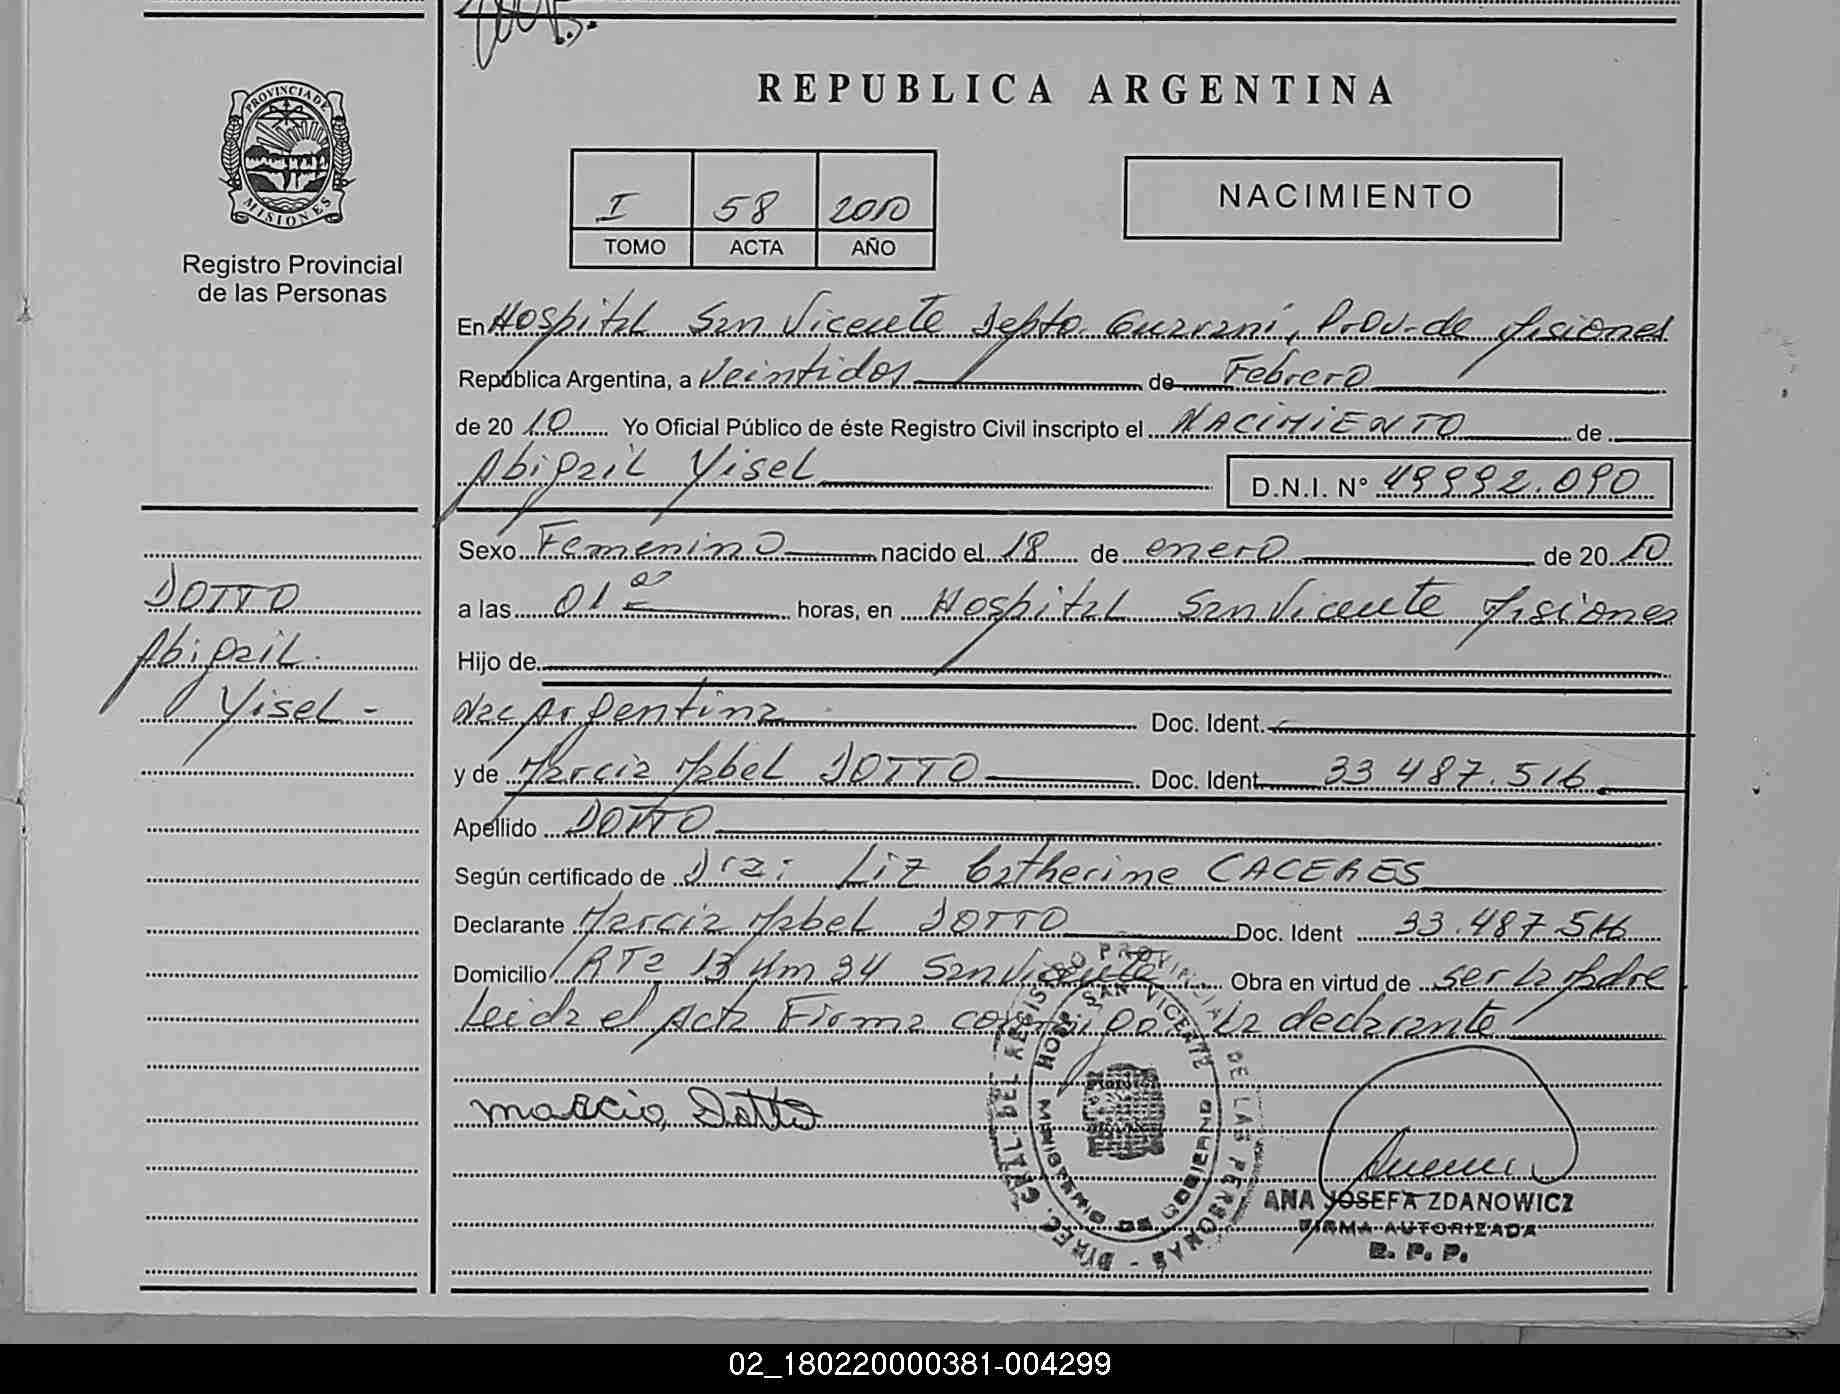 REPUBLICA ARGENTINA
PROVINCIA DE
MISIONES
Registro Provincial
de las Personas
I 58 2010
TOMO ACTA AÑO
NACIMIENTO
En Hospital San Vicente Depto. Guarani, Prov. de Misiones
República Argentina, a Veintidos de Febrero
de 20 10 Yo Oficial Público de éste Registro Civil inscripto el NACIMIENTO de
Abigail Yisel D.N.I. N° 49992.090
Sexo Femenino nacido el 18 de enero de 20 10
a las 01 horas, en Hospital San Vicente Misiones
Hijo de
Nac Argentina Doc. Ident.
y de Marcia Mabel DOTTO Doc. Ident 33.487.516
Apellido DOTTO
Según certificado de Dra: Liz Catherine CACERES
Declarante Marcia Mabel DOTTO Doc. Ident 33.487.516
Domicilio RTa 13 Km 34 San Vicente Obra en virtud de ser la Madre
Leida el Acta Firma conmigo la declarante
DOTTO
Abigail
Yisel -
Marcia, Dotto
DIREC. GRAL. DEL REGISTRO PROVINCIAL DE LAS PERSONAS -
HOSP. SAN VICENTE
MINISTERIO DE GOBIERNO
ANA JOSEFA ZDANOWICZ
FIRMA AUTORIZADA
R. P. P.
02_180220000381-004299